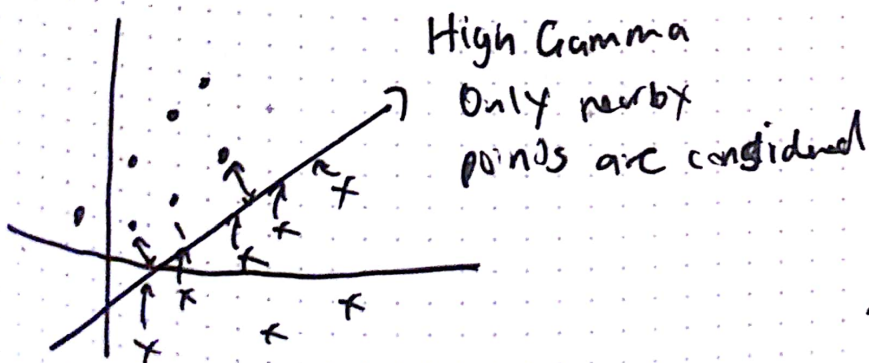 High Gamma
Only nearby
points are considered